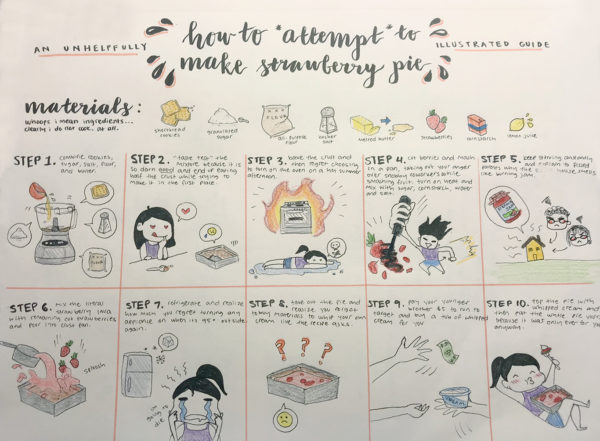 how to *attempt* to
AN UNHELPFULLY
ILLUSTRATED GUIDE
make strawberry pie
materials:
whoops i mean ingredients...
clearly i do not cook. at all.
shortbread
cookies
granulated
sugar
all-purpose
flour
kosher
salt
melted butter
strawberries
cornstarch
lemon juice
STEP 1. combine cookies,
sugar, salt, flour,
and butter.
STEP 2. "taste test" the
mixture because it is
so darn good and end up eating
half the crust while trying to
make it in the first place.
STEP 3. bake the crust and
then regret choosing
to turn on the oven on a hot summer
afternoon.
STEP 4. cut berries and mash
in a pan, taking out your anger
over annoying coworkers while
smashing fruit. turn on heat and
mix with sugar, cornstarch, water
and salt.
STEP 5. keep stirring constantly
and explain to
parents why the house smells
like burning jam.
STEP 6. mix the literal
strawberry lava
with remaining cut strawberries
and pour into cool pan.
SPLOOSH
STEP 7. refrigerate and realize
how much you regret turning any
appliance on when it's 95° outside
again.
i'm going
to
die
STEP 8. take out the pie and
realize you forgot
to buy materials to whip your own
cream like the recipe asks.
? ? ?
STEP 9. pay your younger
brother $5 to run to
target and buy a tub of whipped
cream for you
CREAM
STEP 10. top the pie with
whipped cream and
then eat the whole pie
because it was only ever for you
anyway.